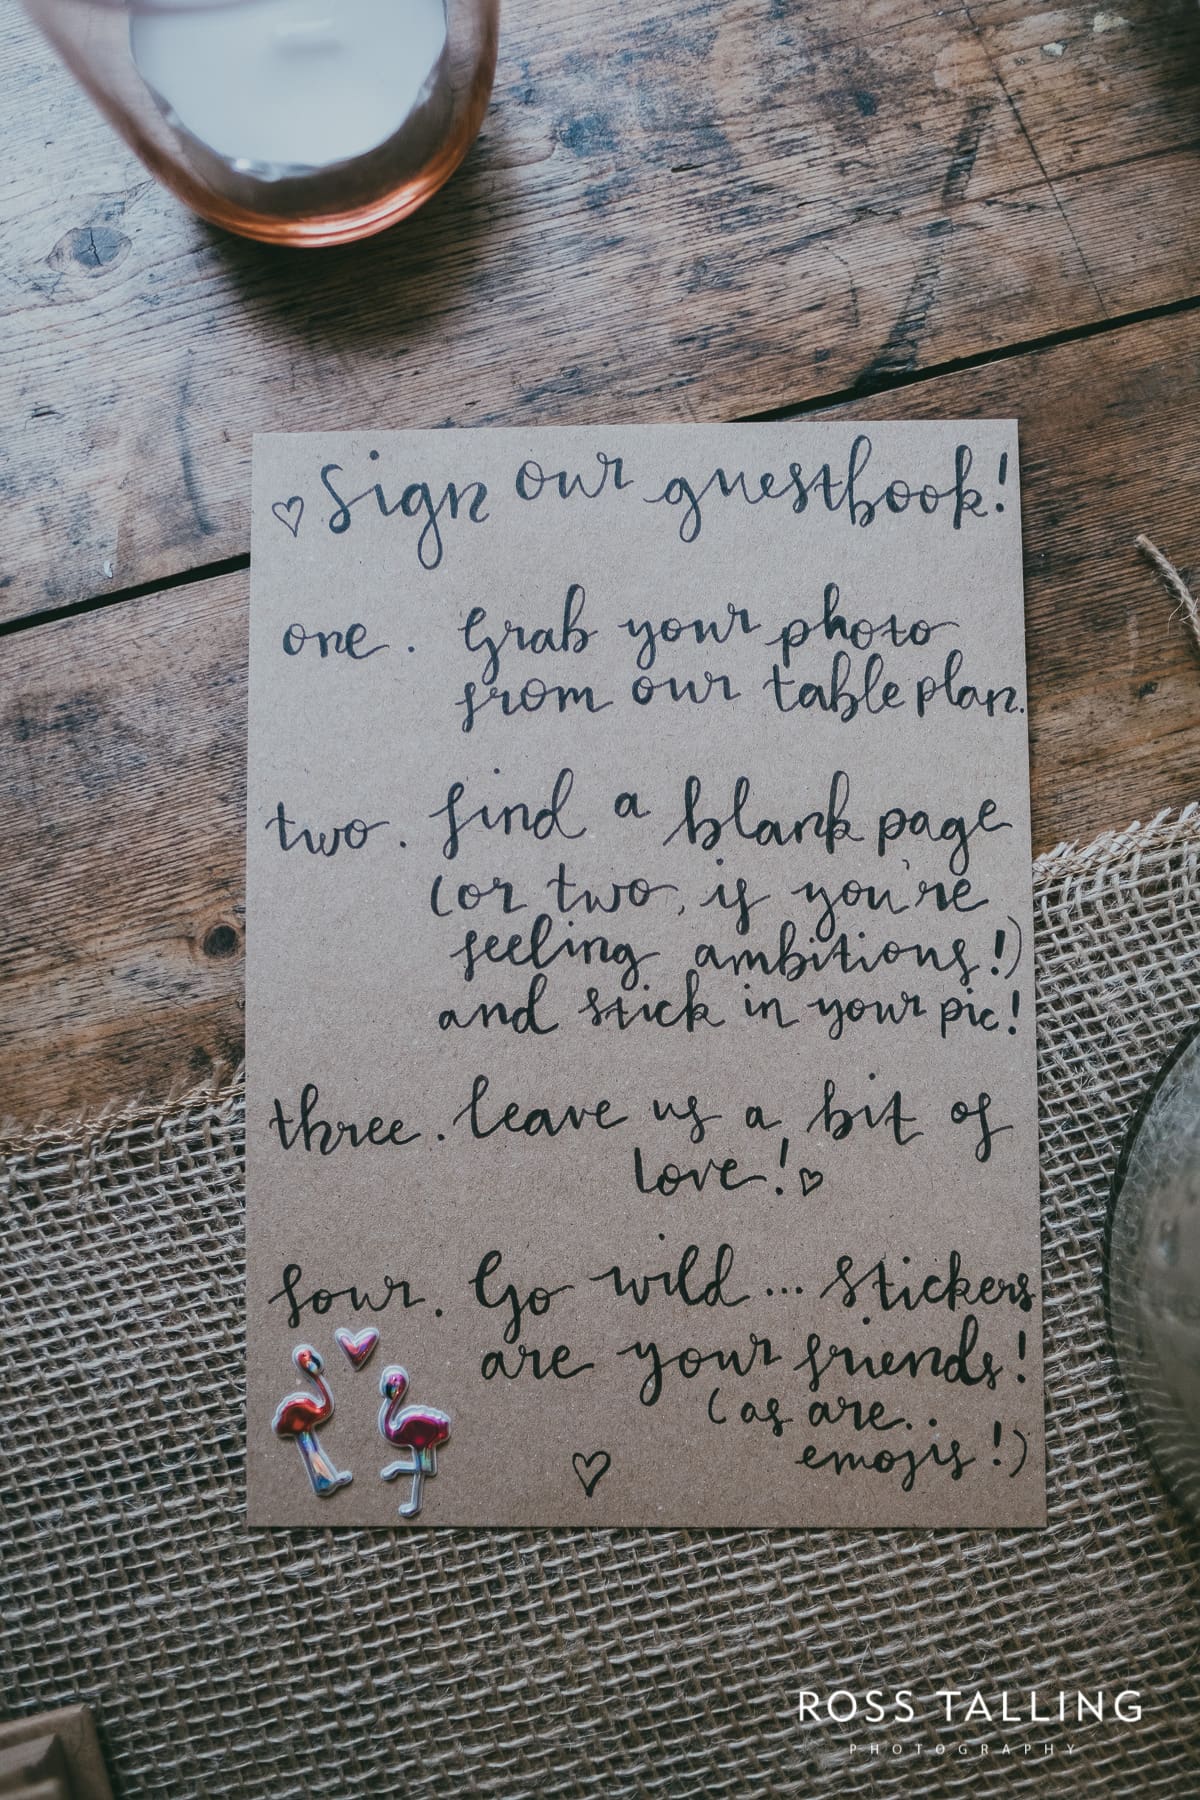 ♡ Sign our guestbook!
one. Grab your photo
from our table plan.
two. find a blank page
(or two, if you're
feeling ambitious!)
and stick in your pic!
three. leave us a bit of
love! ♡
four. Go wild... stickers
are your friends!
(as are..
emojis!)
♡
ROSS TALLING
PHOTOGRAPHY